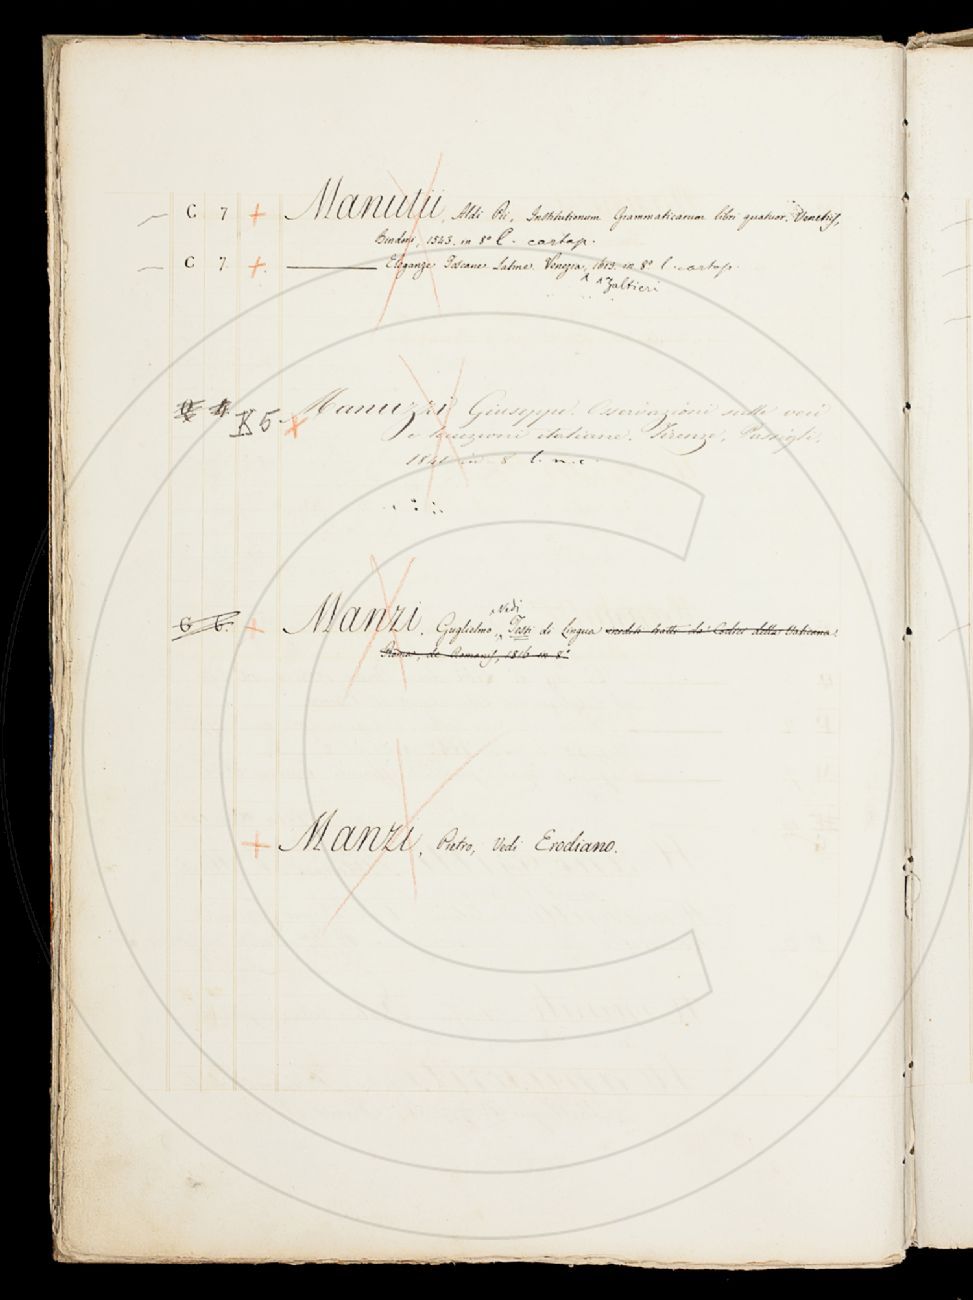 C 7 + Manutii, Aldi Pii, Institutionum Grammaticarum libri quatuor. Venetiis,
Bindoni, 1543. in 8° l. cartap.
C 7. + ——— Eleganze Toscane Latine. Venezia, 1613. in 8° l. cartap.
Zaltieri
K 5 + Manuzzi Giuseppe. Osservazioni sulle voci
e locuzioni italiane. Firenze, Passigli,
1841 in 8 l. n. c.
Vedi
G 6. + Manzi, Guglielmo, Testi di Lingua inediti tratti da' Codici della Vaticana.
Roma, de Romanis, 1816 in 8°
+ Manzi, Pietro, Vedi Erodiano.